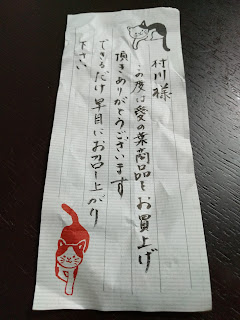 村川様
この度は愛の葉商品をお買上げ
頂きありがとうございます
できるだけ早目にお召し上がり
下さい